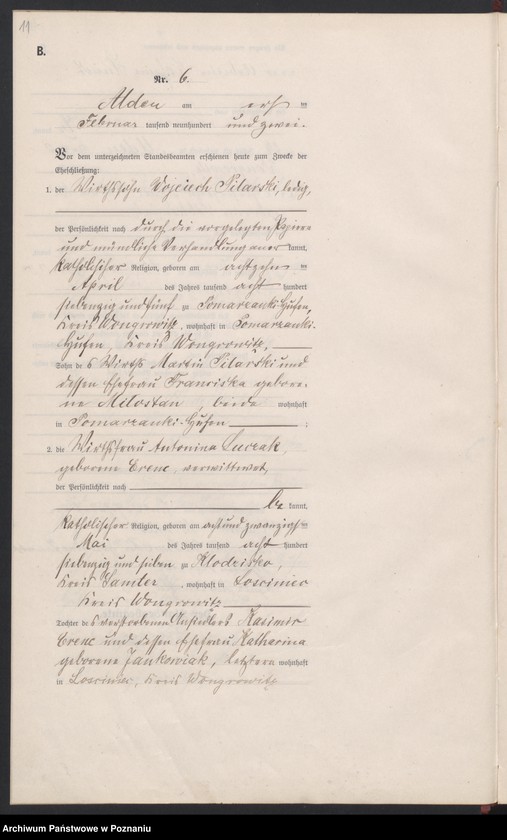 11
B.
Nr. 6.
am ersten
Februar tausend neunhundert und zwei.
Vor dem unterzeichneten Standesbeamten erschienen heute zum Zwecke der
Eheschließung:
1. der Wirthssohn Wojciech Pilarski, ledig,
der Persönlichkeit nach durch die vorgelegten Papiere
und mündliche Verhandlung aner kannt,
katholischer Religion, geboren am achtzehnten
April des Jahres tausend acht hundert
siebenzig und fünf zu Pomarzanki-Hufen,
Kreis Wongrowitz, wohnhaft in Pomarzanki-
Hufen, Kreis Wongrowitz,
Sohn des Wirths Martin Pilarski und
dessen Ehefrau Franciska gebore-
ne Milostan, beide wohnhaft
in Pomarzanki-Hufen ;
2. die Wirthsfrau Antonina Luczak,
geborene Crenc, verwittwet,
der Persönlichkeit nach
be kannt,
katholischer Religion, geboren am achtundzwanzigsten
Mai des Jahres tausend acht hundert
siebenzig und sieben zu Klodzisko,
Kreis Samter, wohnhaft in
Kreis Wongrowitz
Tochter des verstorbenen Ansiedlers Kasimir
Crenc und dessen Ehefrau Katharina
geborene Jankowiak, letztere wohnhaft
in Kreis Wongrowitz
Archiwum Państwowe w Poznaniu